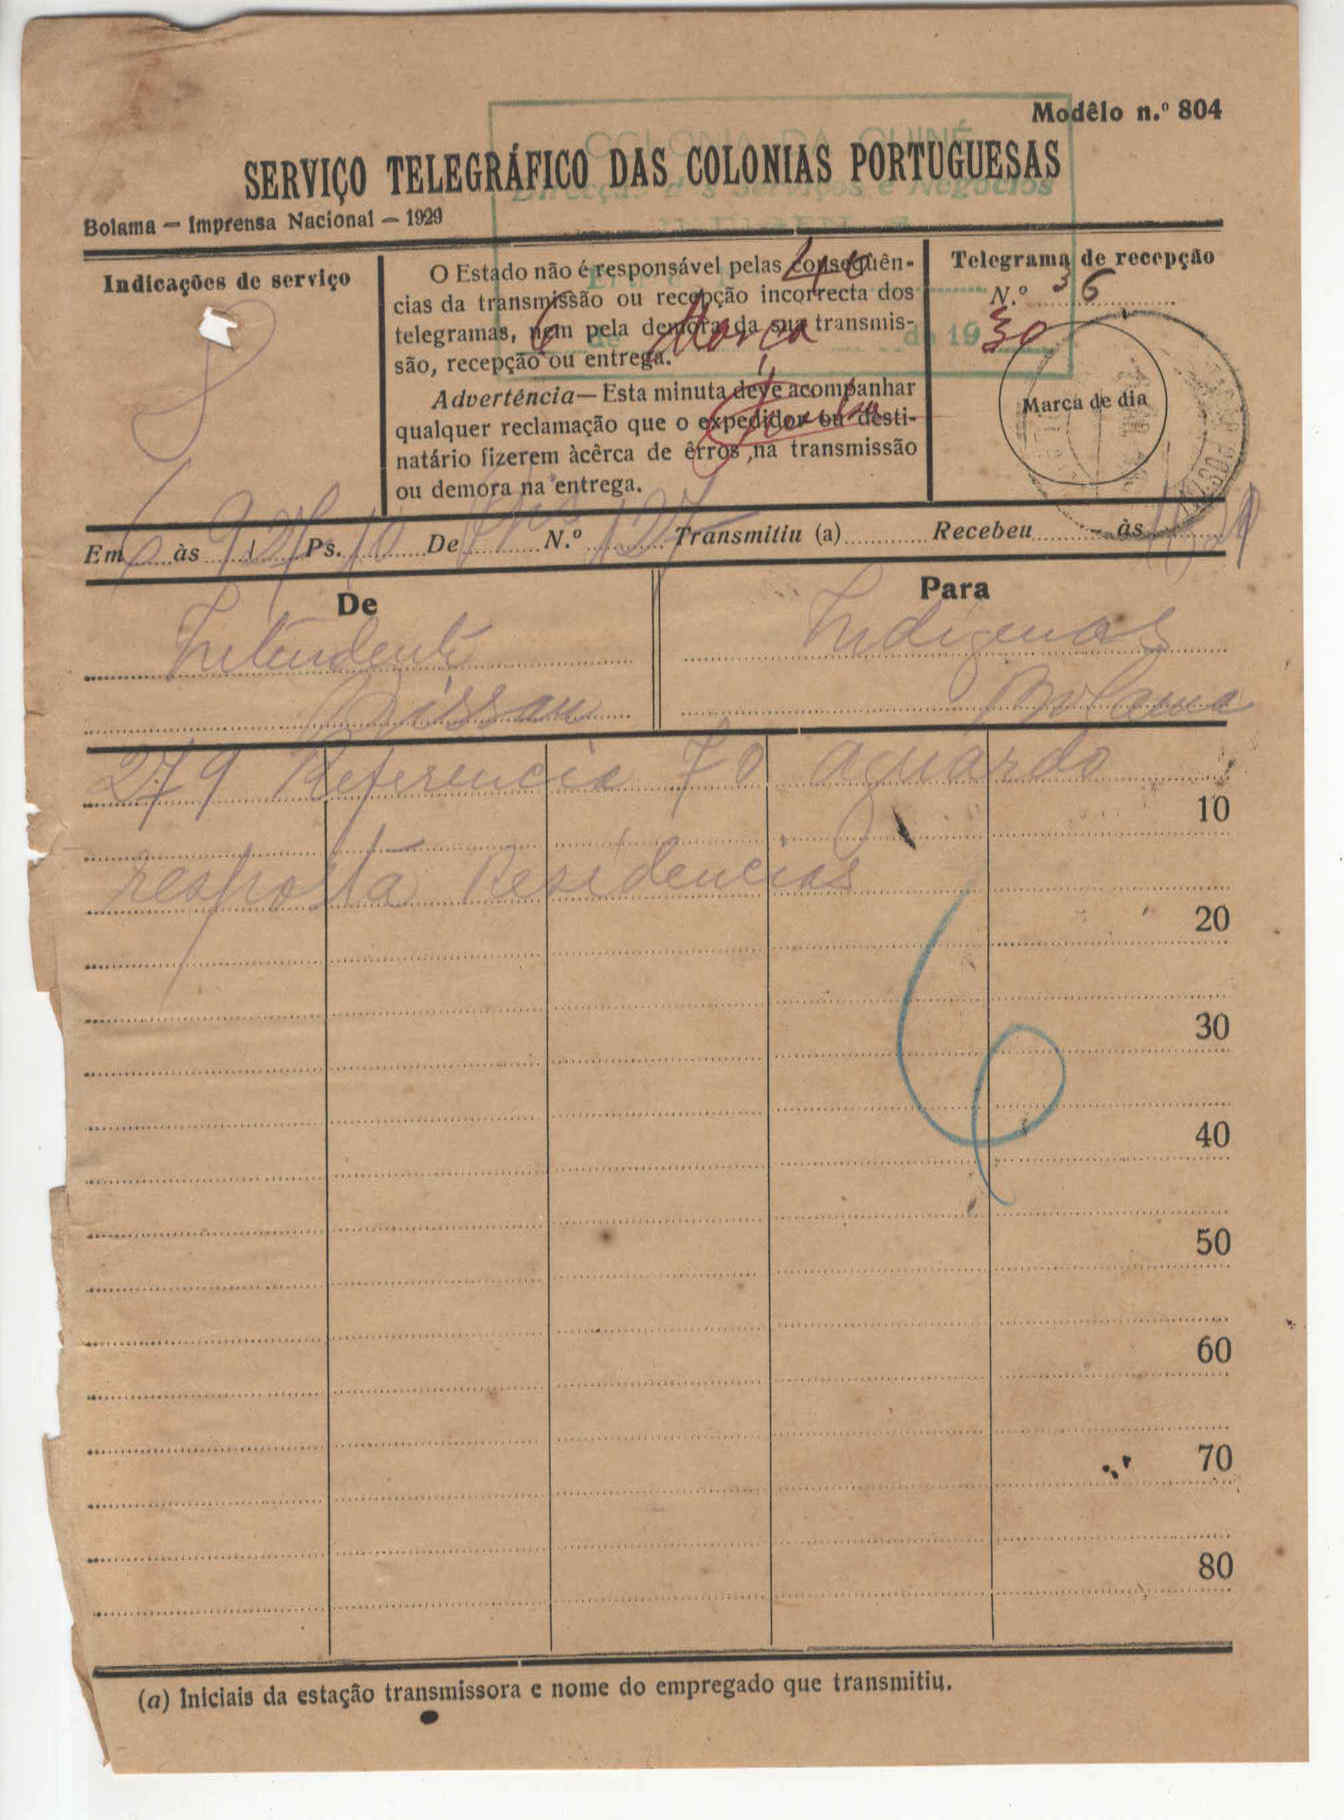 Modêlo n.º 804
COLONIA DA GUINÉ
SERVIÇO TELEGRÁFICO DAS COLONIAS PORTUGUESAS
Direcção dos Serviços e Negocios
Bolama — Imprensa Nacional — 1929
Indicações de serviço
O Estado não é responsável pelas consequên-
cias da transmissão ou recepção incorrecta dos
telegramas, nem pela demora da sua transmis-
são, recepção ou entrega.
Advertência— Esta minuta deve acompanhar
qualquer reclamação que o expedidor ou desti-
natário fizerem àcêrca de êrros na transmissão
ou demora na entrega.
6 de Março de 1930
Telegrama de recepção
N.º 36
Marca de dia
Em 6 às Ps. 10 De N.º 127 Transmitiu (a) Recebeu às
De
Intendente
Bissau
Para
Indigenas
Bolama
279 Referencia 70 aguardo
10
resposta Residencias
20
30
6
40
50
60
70
80
(a) Iniciais da estação transmissora e nome do empregado que transmitiu.